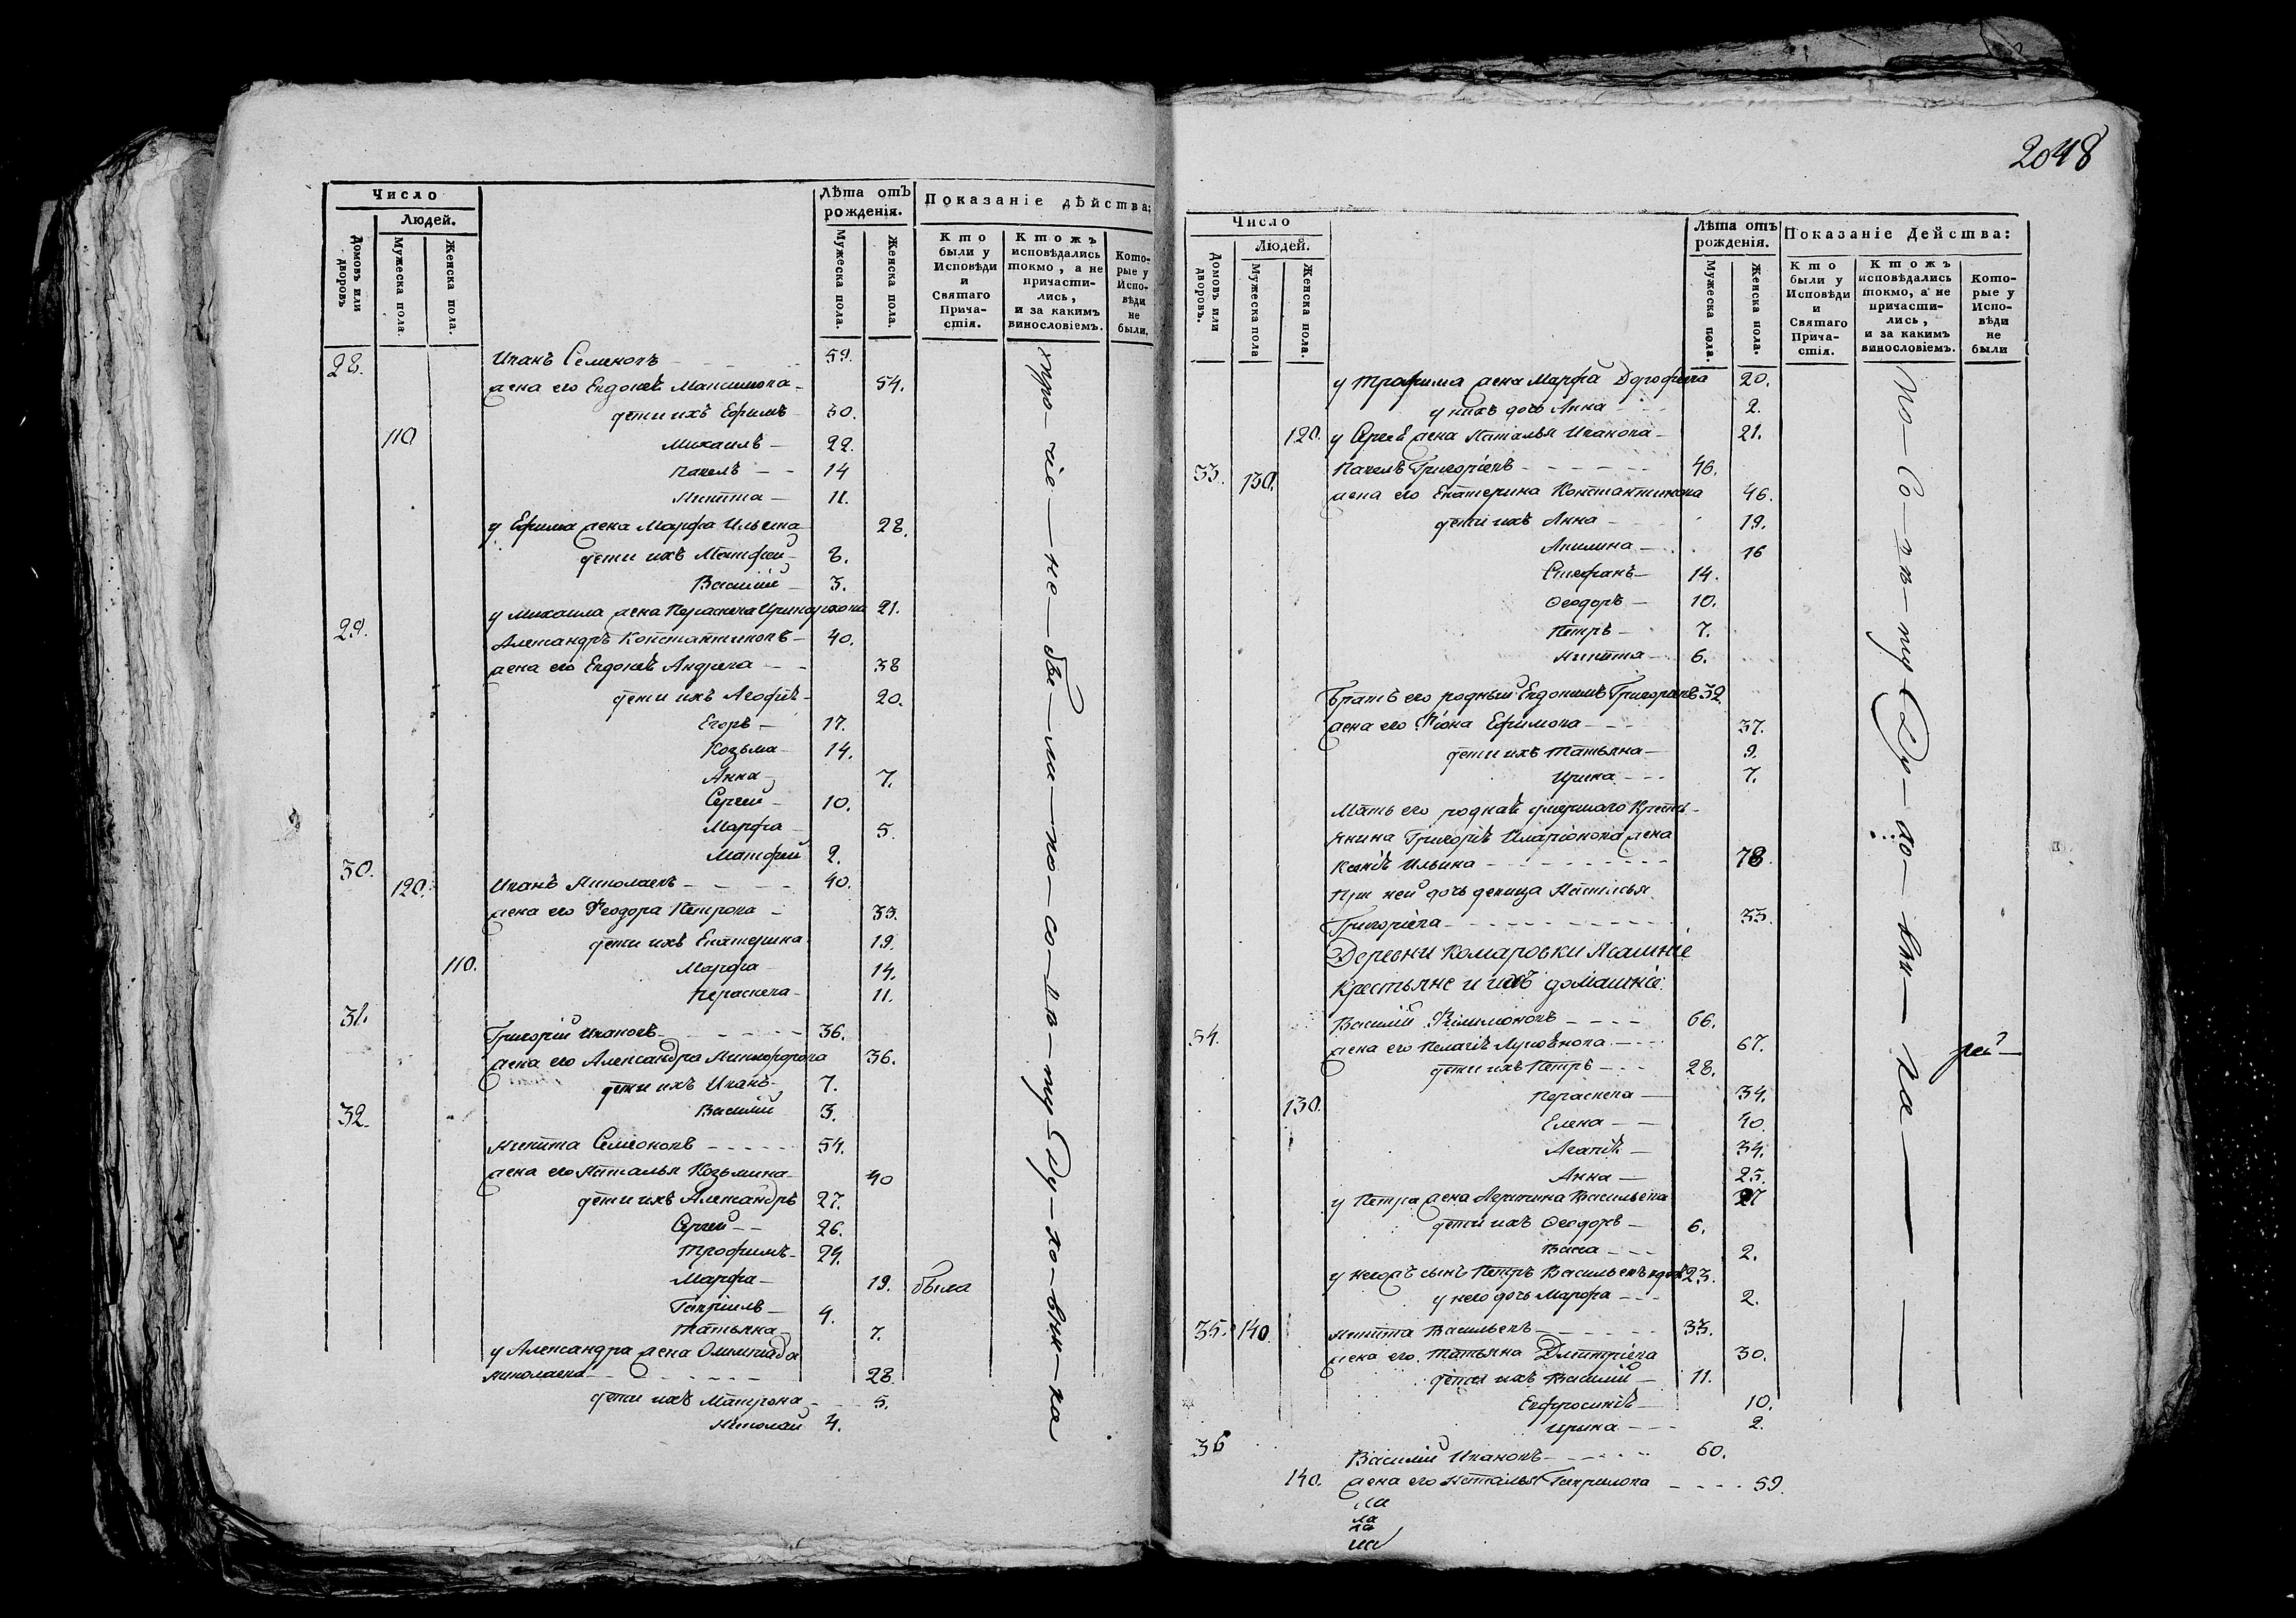 Число
Людей.
Домовъ или дворовъ
Мужеска пола.
Женска пола.
Лѣта отъ рожденія.
Мужеска пола.
Женска пола.
Показаніе дѣйства:
Кто были у Исповѣди и Святаго Причастія.
Ктожъ исповѣдались токмо, а не причастились, и за какимъ винословіемъ.
Которые у Исповѣди не были.
28. Иванъ Семеновъ 59.
жена его Евдокія Максимова 54.
дети ихъ Ефимъ 30.
110 Михаилъ 22.
Павелъ 14
Никита 11.
у Ефима жена Марфа Ильина 28.
дети ихъ Матфей 8.
Василій 3.
у Михаила жена Параскева 21.
29. Александръ Константиновъ 40.
жена его Евдокія Андреева 38
дети ихъ Агафія 20.
Егоръ 17.
Козьма 14.
Анна 7.
Сергей 10.
Марфа 5.
Матфей 2.
30. 120. Иванъ Николаевъ 40.
жена его Феодора Петрова 33.
дети ихъ Екатерина 19.
110. Марфа 14.
Параскева 11.
31. Григорій Ивановъ 36.
жена его Александра Никифорова 36.
дети ихъ Иванъ 7.
Василій 3.
32. Никита Семеоновъ 54.
жена его Наталья Козьмина 40
дети ихъ Александръ 27.
Сергей 26.
Трофимъ 24.
Марфа 19. была
Гавріилъ 4.
Татьяна 7.
у Александра жена Олимпіада
Николаева 28.
дети ихъ Матрона 5.
Николай 4.
не-бы-ли-по-со-
2048
Число
Людей.
Домовъ или дворовъ.
Мужеска пола
Женска пола.
Лѣта отъ рожденія.
Мужеска пола.
Женска пола.
Показаніе Действа:
Кто были у Исповѣди и Святаго Причастія.
Ктожъ исповѣдались токмо, а не причастились, и за какимъ винословіемъ.
Которые у Исповѣди не были
у Трофима жена Марфа Дорофеева 20.
у нихъ дочь Анна 2.
120. у Сергея жена Наталья Иванова 21.
33. 130. Павелъ Григоріевъ 46.
жена его Екатерина Константинова 46.
дети ихъ Анна 19.
Акилина 16
Стефанъ 14.
Феодоръ 10.
Петръ 7.
Никита 6.
Братъ его родный Евдокимъ Григорьевъ 32.
жена его Фіона Ефимова 37.
дети ихъ Татьяна 9.
Ирина 7.
Мать его родная умершаго Кресть-
янина Григорія Иларіонова жена
Ксенія Ильина 78.
При ней дочь девица Наталья
Григоріева 33.
Деревни Комаровки
Крестьяне и ихъ домашніе.
34. Василій Филимоновъ 66.
жена его Пелагія 67.
дети ихъ Петръ 28.
130. Параскева 34.
Елена 40.
Агапія 34.
Анна 25.
у Петра жена Васильева 27
дети ихъ Феодоръ 6.
Васса 2.
у негожъ сынъ Петръ Васильевъ вдовъ 23.
у него дочь Марфа 2.
35. 140. Никита Васильевъ 33.
жена его Татьяна Дмитріева 30.
дети ихъ Василій 11.
Евфросинія 10.
Ирина 2.
36 Василій Ивановъ 60.
140. жена его Наталья Гаврилова 59.